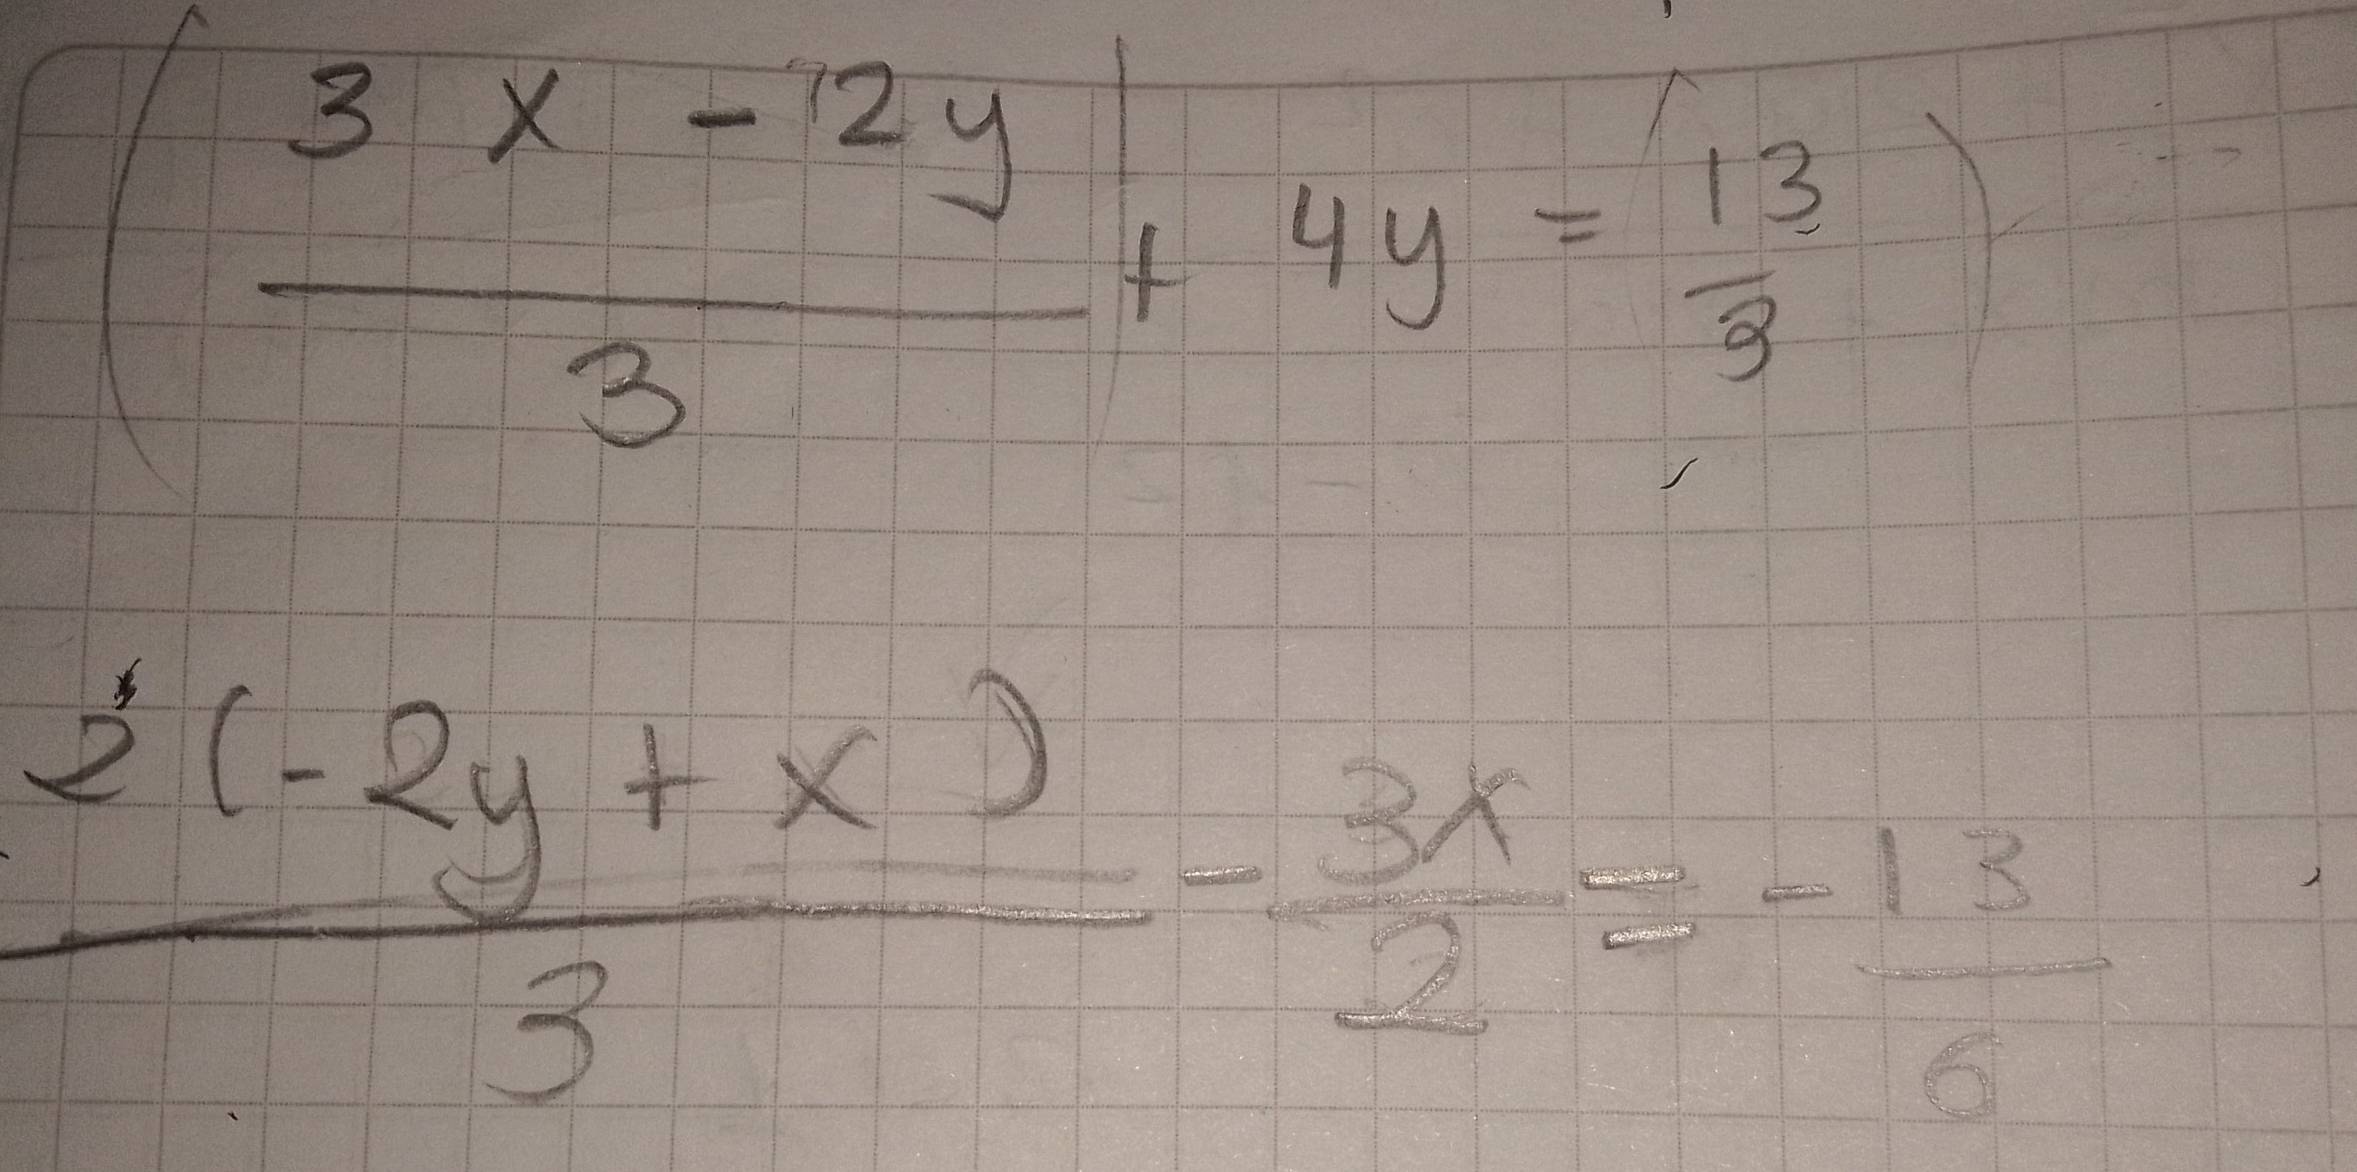 (3x - 2y / 3) + 4y = (13 / 3)
2(-2y + x) / 3 - 3x / 2 = -13 / 6